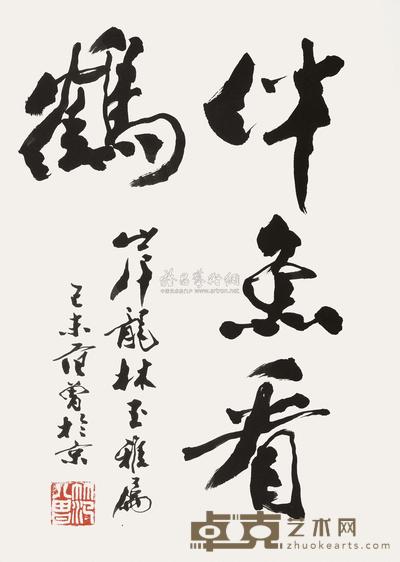 伴魚看
鶴
岸龍林玉雅屬
己未范曾於京
雅昌藝術網
www.artron.net
卓克艺术网
zhuokearts.com